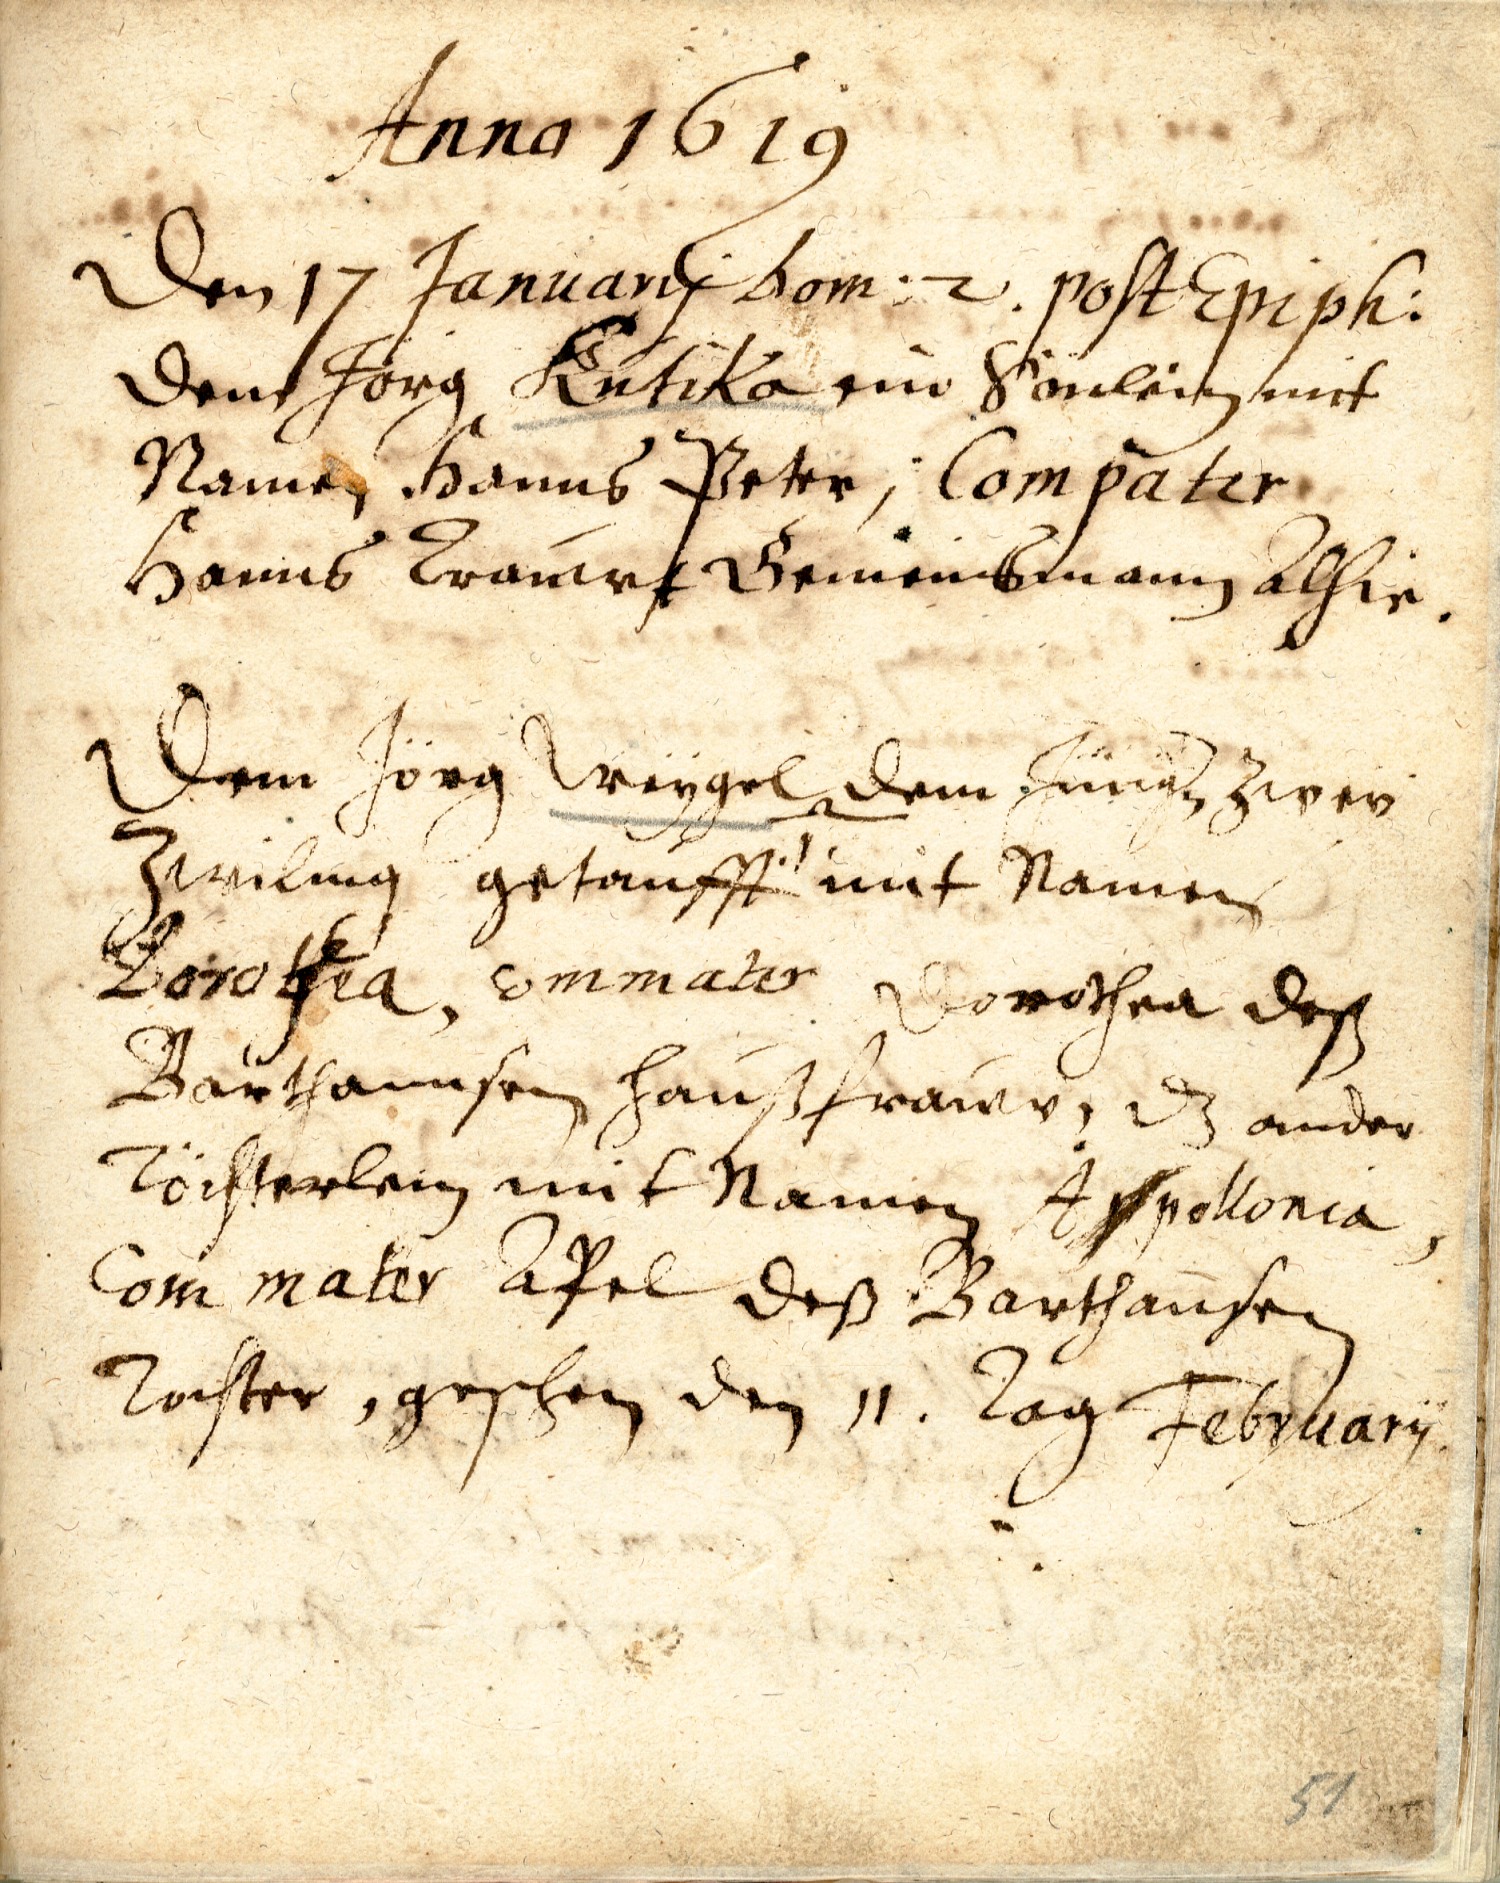 Anno 1619
Den 17 Januarij Dom: 2. post Epiph:
Dem Jörg Kutika ein Sönlein mit
Namen Hanns Peter, Compater
Hanns Gemeinsmann Alhie.
Dem Jörg Weÿgel dem Jüng: Zwei
Zwiling getaufft mit Namen
Dorothea, Commater Dorothea deß
Barthannsen Haußfrauw, dz ander
Töchterlein mit Namen Appollonia,
Commater Apel deß Barthannsen
Tochter, geschehen den 11. Tag Februarij
51